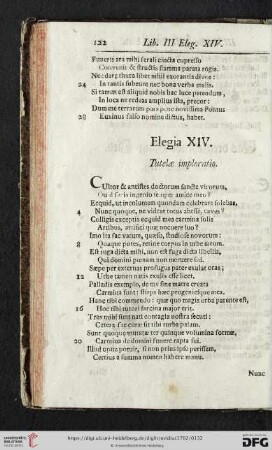 122 Lib. III Eleg. XIV.
Funeris ara mihi ferali cincta cupresso
Convenit & structis flamma parata rogis.
Nec dare thura libet nihil exorantia divos:
24 In tantis subeunt nec bona verba malis.
Si tamen est aliquid nobis hac luce petendum,
In loca ne redeas amplius ista, precor:
Dum me terrarum pars pene novissima Pontus
28 Euxinus falso nomine dictus, habet.
Elegia XIV.
Tutelæ imploratio.
CUltor & antistes doctorum sancte virorum,
Quid facis ingenio semper amice meo?
Ecquid, ut incolumem quondam celebrare solebas,
4 Nunc quoque, ne videar totus abesse, caves?
Colligis exceptis ecquid mea carmina solis
Artibus, artifici quæ nocuere suo?
Imo ita fac vatum, quæso, studiose novorum:
8 Quaque potes, retine corpus in urbe meum.
Est fuga dicta mihi, non est fuga dicta libellis,
Qui domini pœnam non meruere sui.
Sæpe per externas profugus pater exulat oras;
12 Urbe tamen natis exulis esse licet.
Palladis exemplo, de me sine matre creata
Carmina sunt: stirps hæc progeniesque mea.
Hanc tibi commendo: quæ quo magis orba parente est,
16 Hoc tibi tutori sarcina major erit.
Tres mihi sunt nati contagia nostra secuti:
Cetera fac curæ sit tibi turba palam.
Sunt quoque mutatæ ter quinque volumina formæ,
20 Carmina de domini funere rapta sui.
Illud opus potuit, si non prius ipse perissem,
Certius a summa nomen habere manu.
Nunc
https://digi.ub.uni-heidelberg.de/diglit/ovidius1702/0132
© Universitätsbibliothek Heidelberg